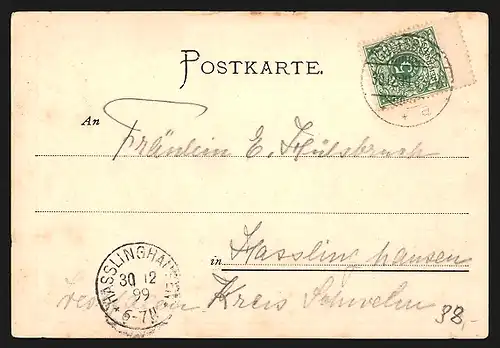 POSTKARTE.
An
Fräulein E. Hülsbruch
in Hasslinghausen
Kreis Schwelm
HASSLINGHAUSEN
30 12
99
* 6-7N
38,-